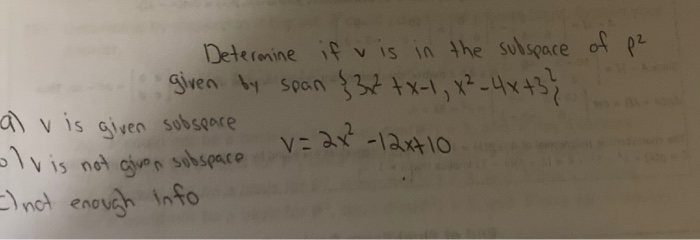 Determine if v is in the subspace of p²
given by span {3x² + x-1, x² - 4x + 3}
a) v is given subspace
b) v is not given subspace
v = 2x² - 12x + 10
c) not enough info